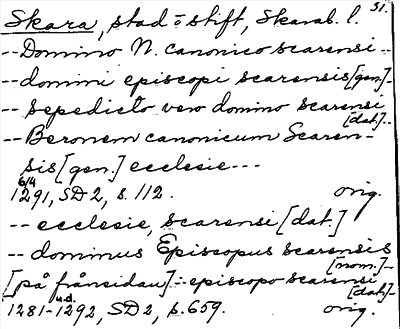 51.
Skara, stad o stift, Skarab. l.
-- Domino N. canonico scarensi --
-- domini episcopi scarensis [gen.] --
-- sepedicto vero domino scarensi [dat.] --
-- Beronem canonicum Scaren-
sis [gen.] ecclesie ---
6/4 1291, SD 2, s. 112. orig.
-- ecclesie, scarensi [dat.]
-- dominus Episcopus scarensis [nom.] --
[på frånsidan] -- episcopo scarensi [dat.] --
1281-1292, u.d. SD 2, s. 659. orig.